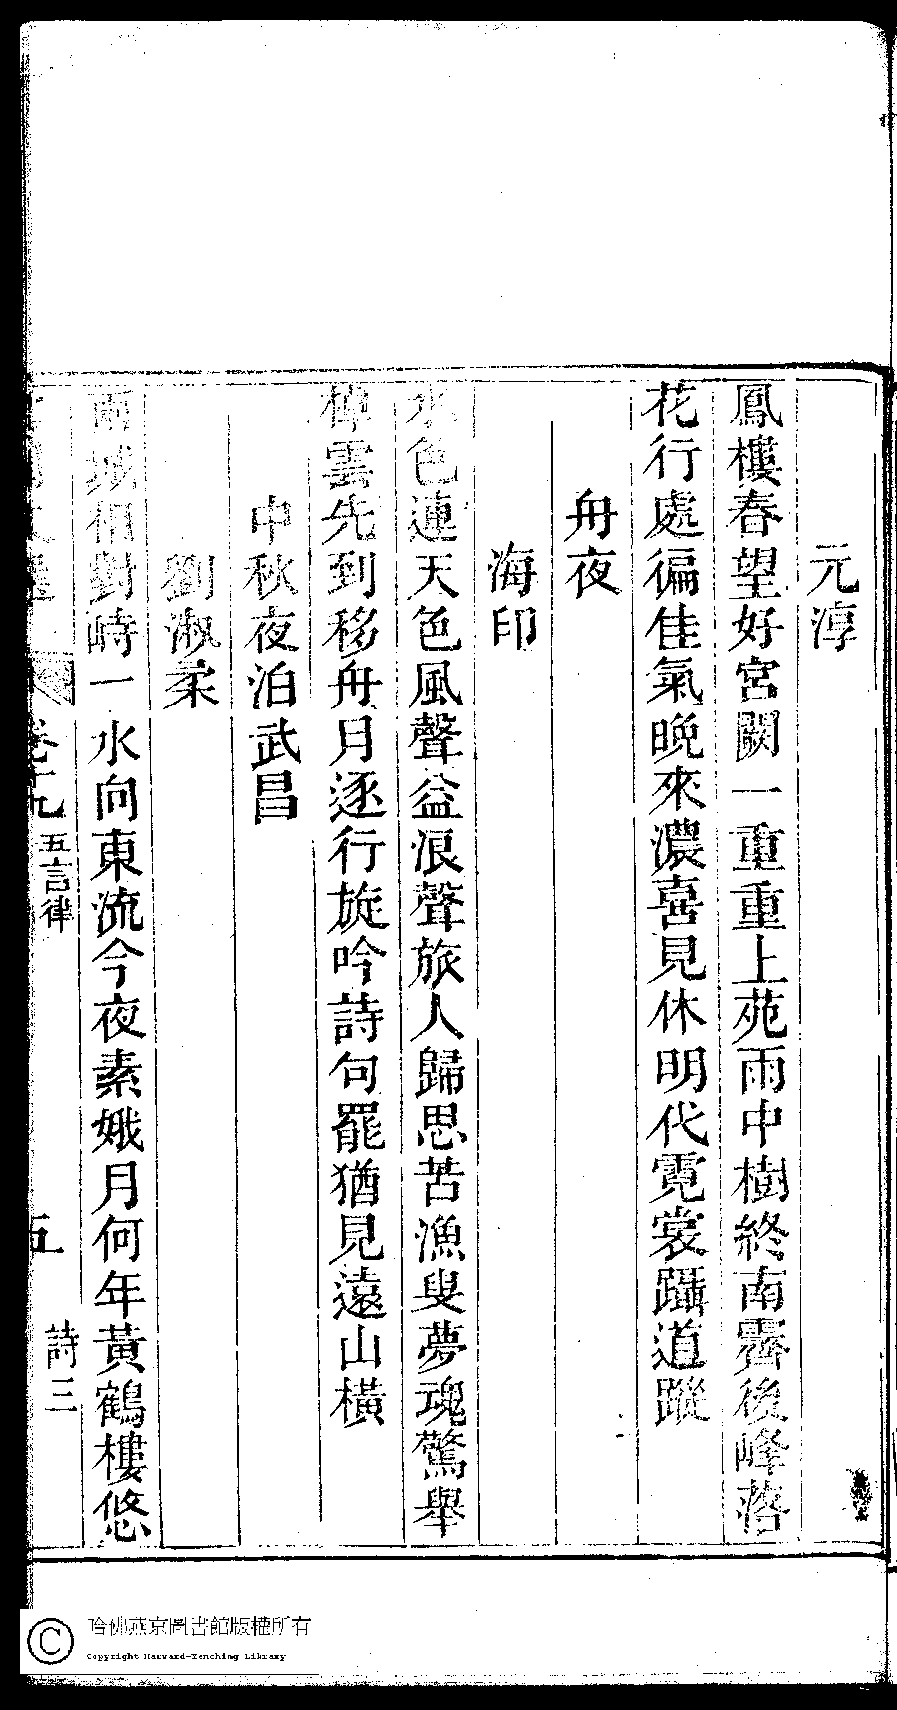 元淳
鳳樓春望好宮闕一重重上苑雨中樹終南霽後峰落
花行處徧佳氣晚來濃喜見休明代霓裳躡道蹤
舟夜
海印
水色連天色風聲益浪聲旅人歸思苦漁叟夢魂驚舉
棹雲先到移舟月逐行旋吟詩句罷猶見遠山橫
中秋夜泊武昌
劉淑柔
兩城相對峙一水向東流今夜素娥月何年黃鶴樓悠
卷十九
五言律
五
詩三
哈佛燕京圖書館版權所有
Copyright Harvard-Yenching Library